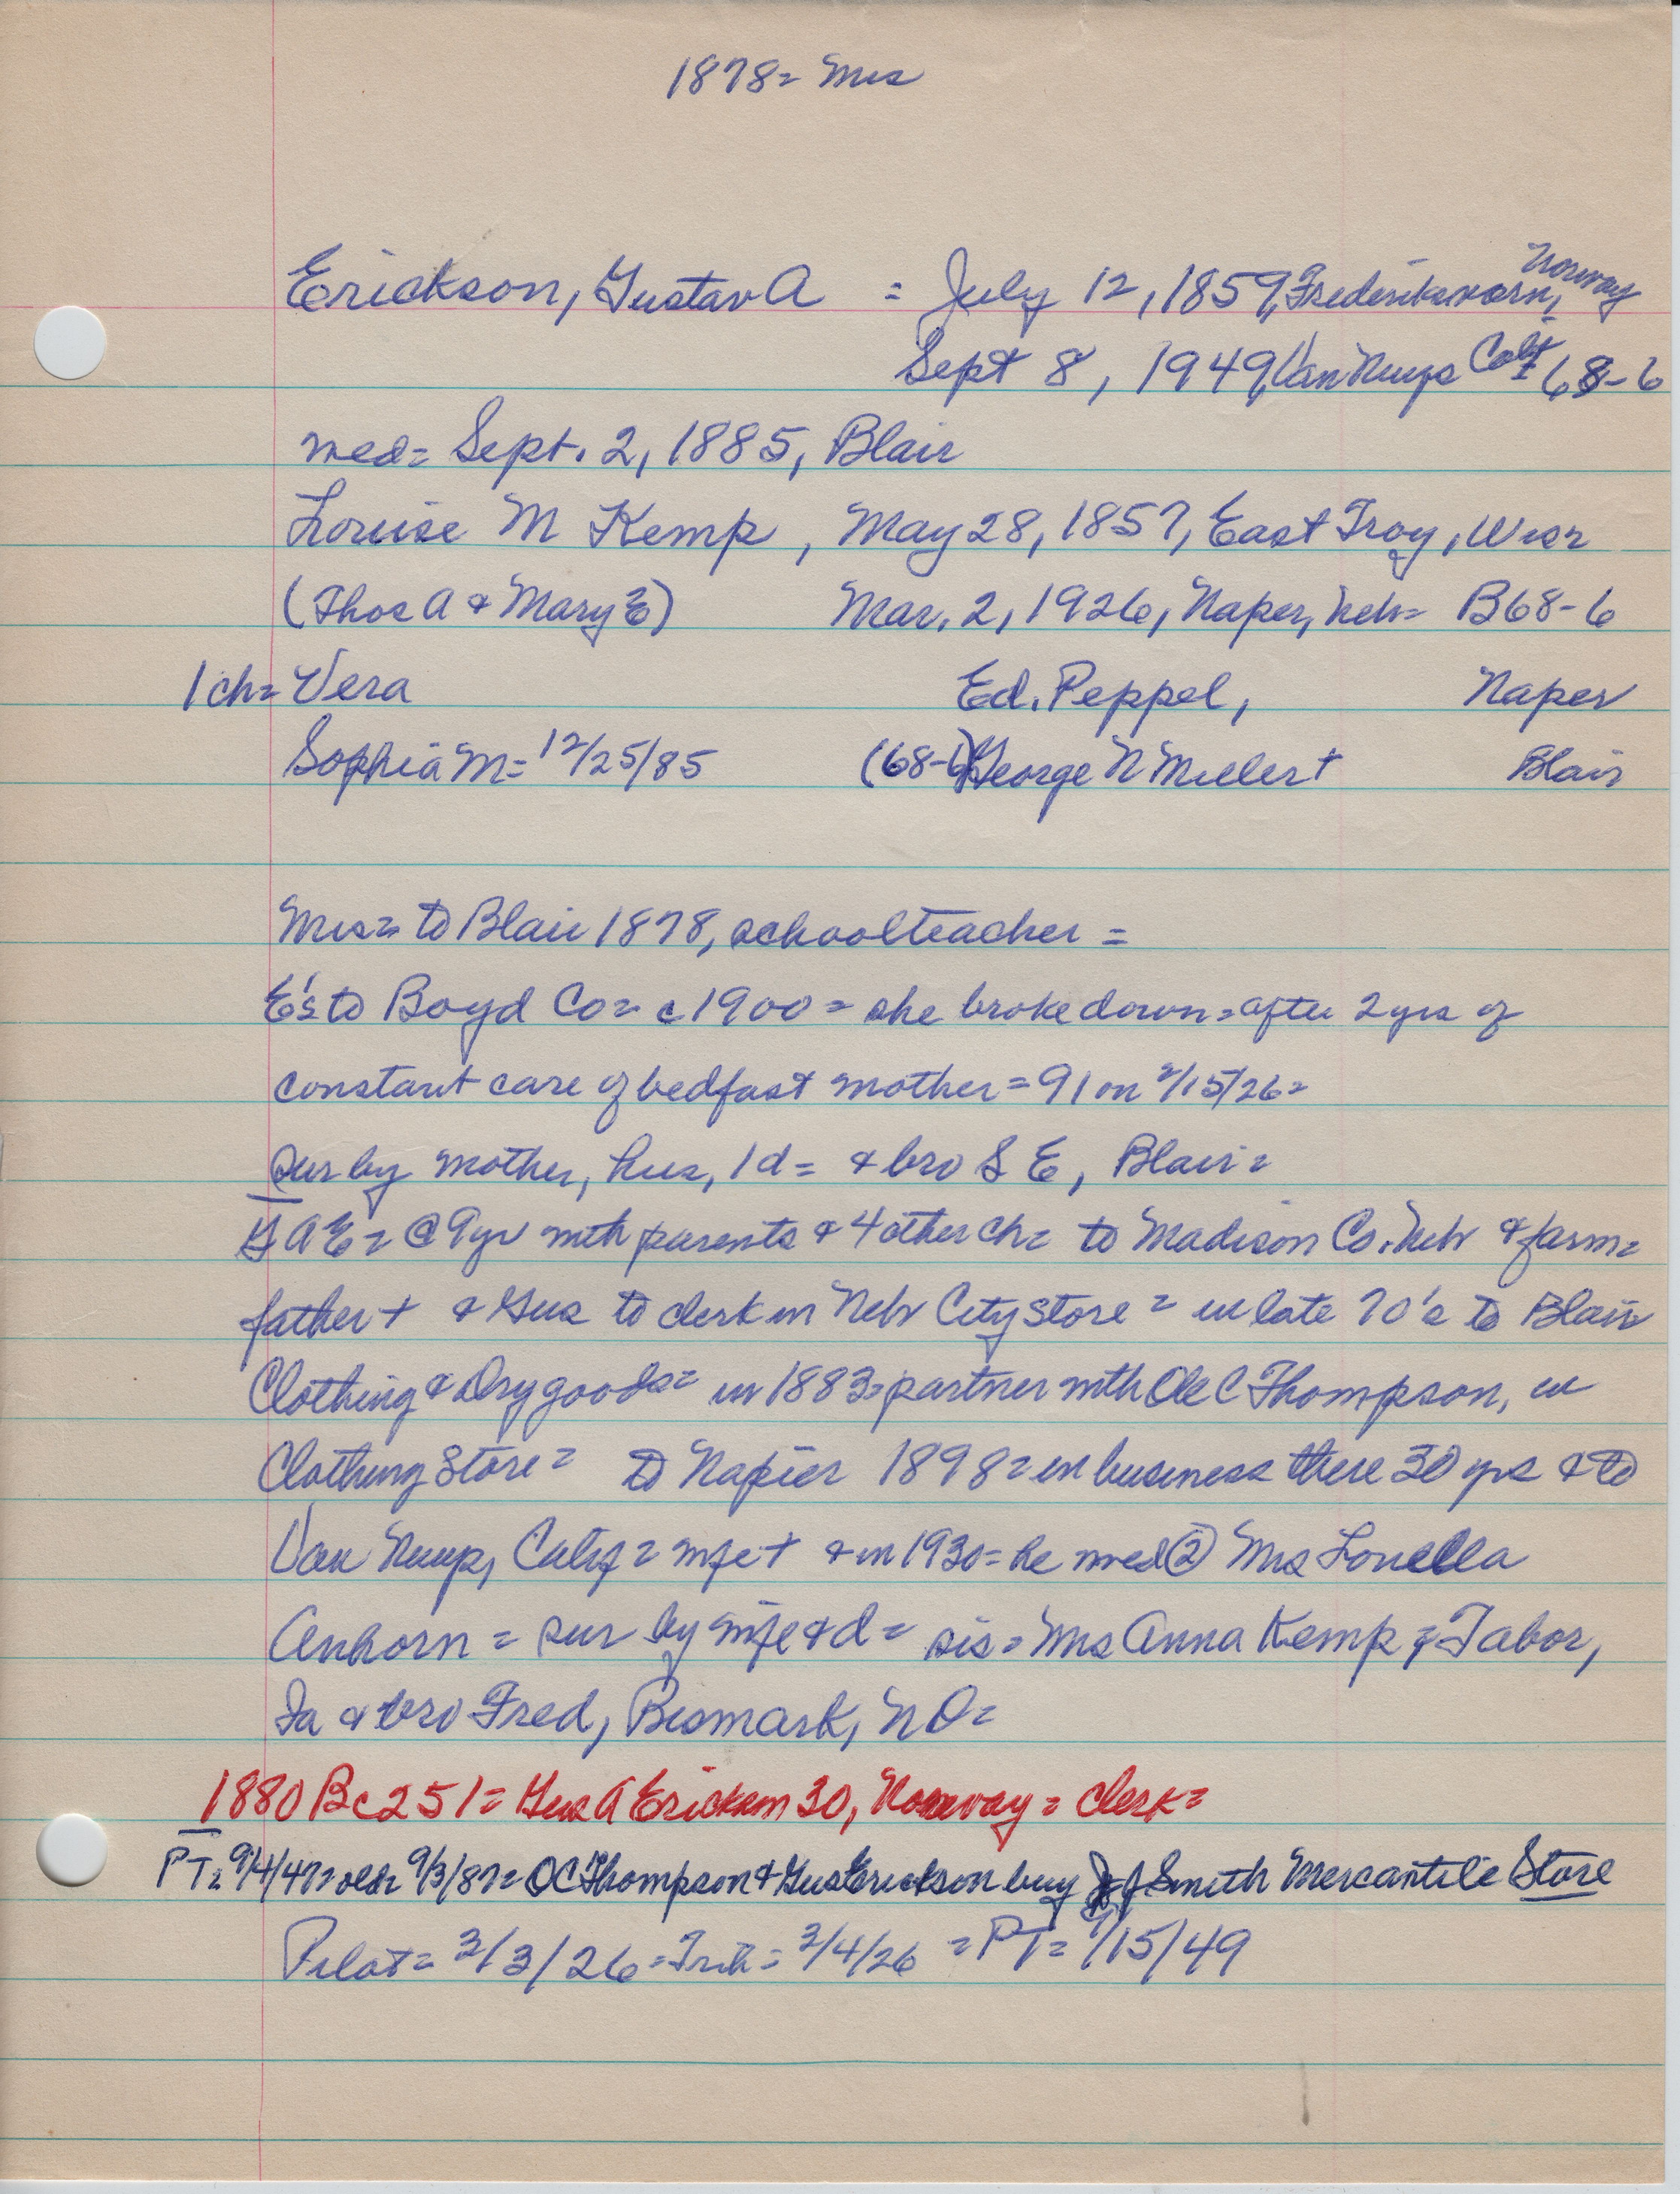 1878= Mrs
Erickson, Gustav A = July 12, 1859, Frederiksvarn, Norway
Sept 8, 1949, Van Nuys Calif 68-6
med= Sept. 2, 1885, Blair
Louise M Kemp, May 28, 1857, East Troy, Wis=
(Thos A & Mary E) Mar. 2, 1926, Naper, Neb= B68-6
1 ch= Vera Ed. Peppel, Naper
Sophia M= 12/25/85 (68-6) George N Miller+ Blair
Mrs= to Blair 1878, schoolteacher =
E's to Boyd Co= c1900= she broke down= after 2 yrs of
constant care of bedfast mother = 91 on 2/15/26=
sur by mother, hus, 1 d= & bro S E, Blair=
G A E= @ 9 yr with parents & 4 other ch= to Madison Co. Neb & farm=
father + & Gus to clerk in Neb City store = in late 70's to Blair
Clothing & Dry goods= in 1883= partner with Ole C Thompson, in
Clothing Store= to Napier 1898= in business there 30 yrs & to
Van Nuys, Calif= wife + & in 1930= he med ② Mrs Louella
Anhorn = sur by wife & d= sis= Mrs Anna Kemp of Tabor,
Ia & bro Fred, Bismark, ND=
1880 Bc251= Gus A Erickson 30, Norway= clerk=
PT= 9/4/47= old= 9/3/87= OC Thompson & Gus Erickson buy Smith Mercantile Store
Pilot= 3/3/26= Trib= 3/4/26 = PT= 9/15/49